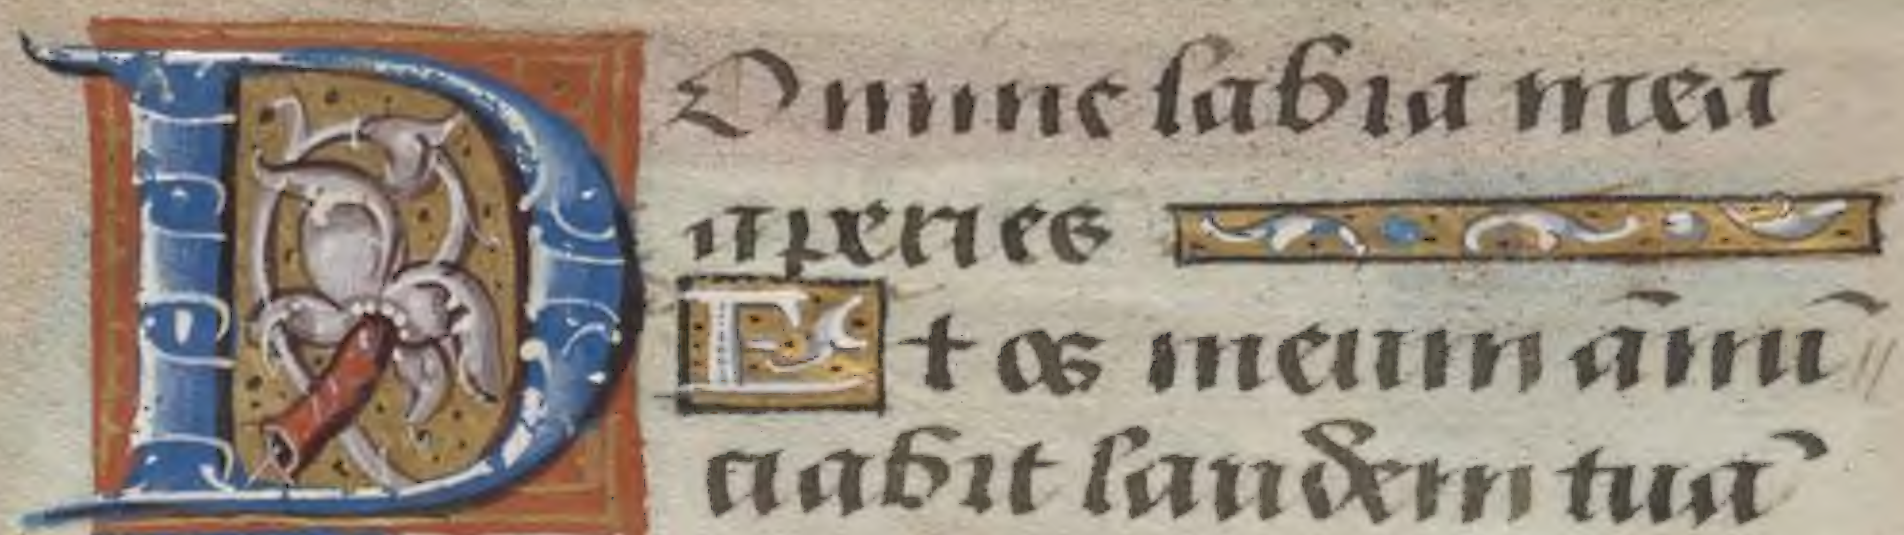 D Omine labia mea
aperies
Et os meum ānū
ciabit laudem tuā